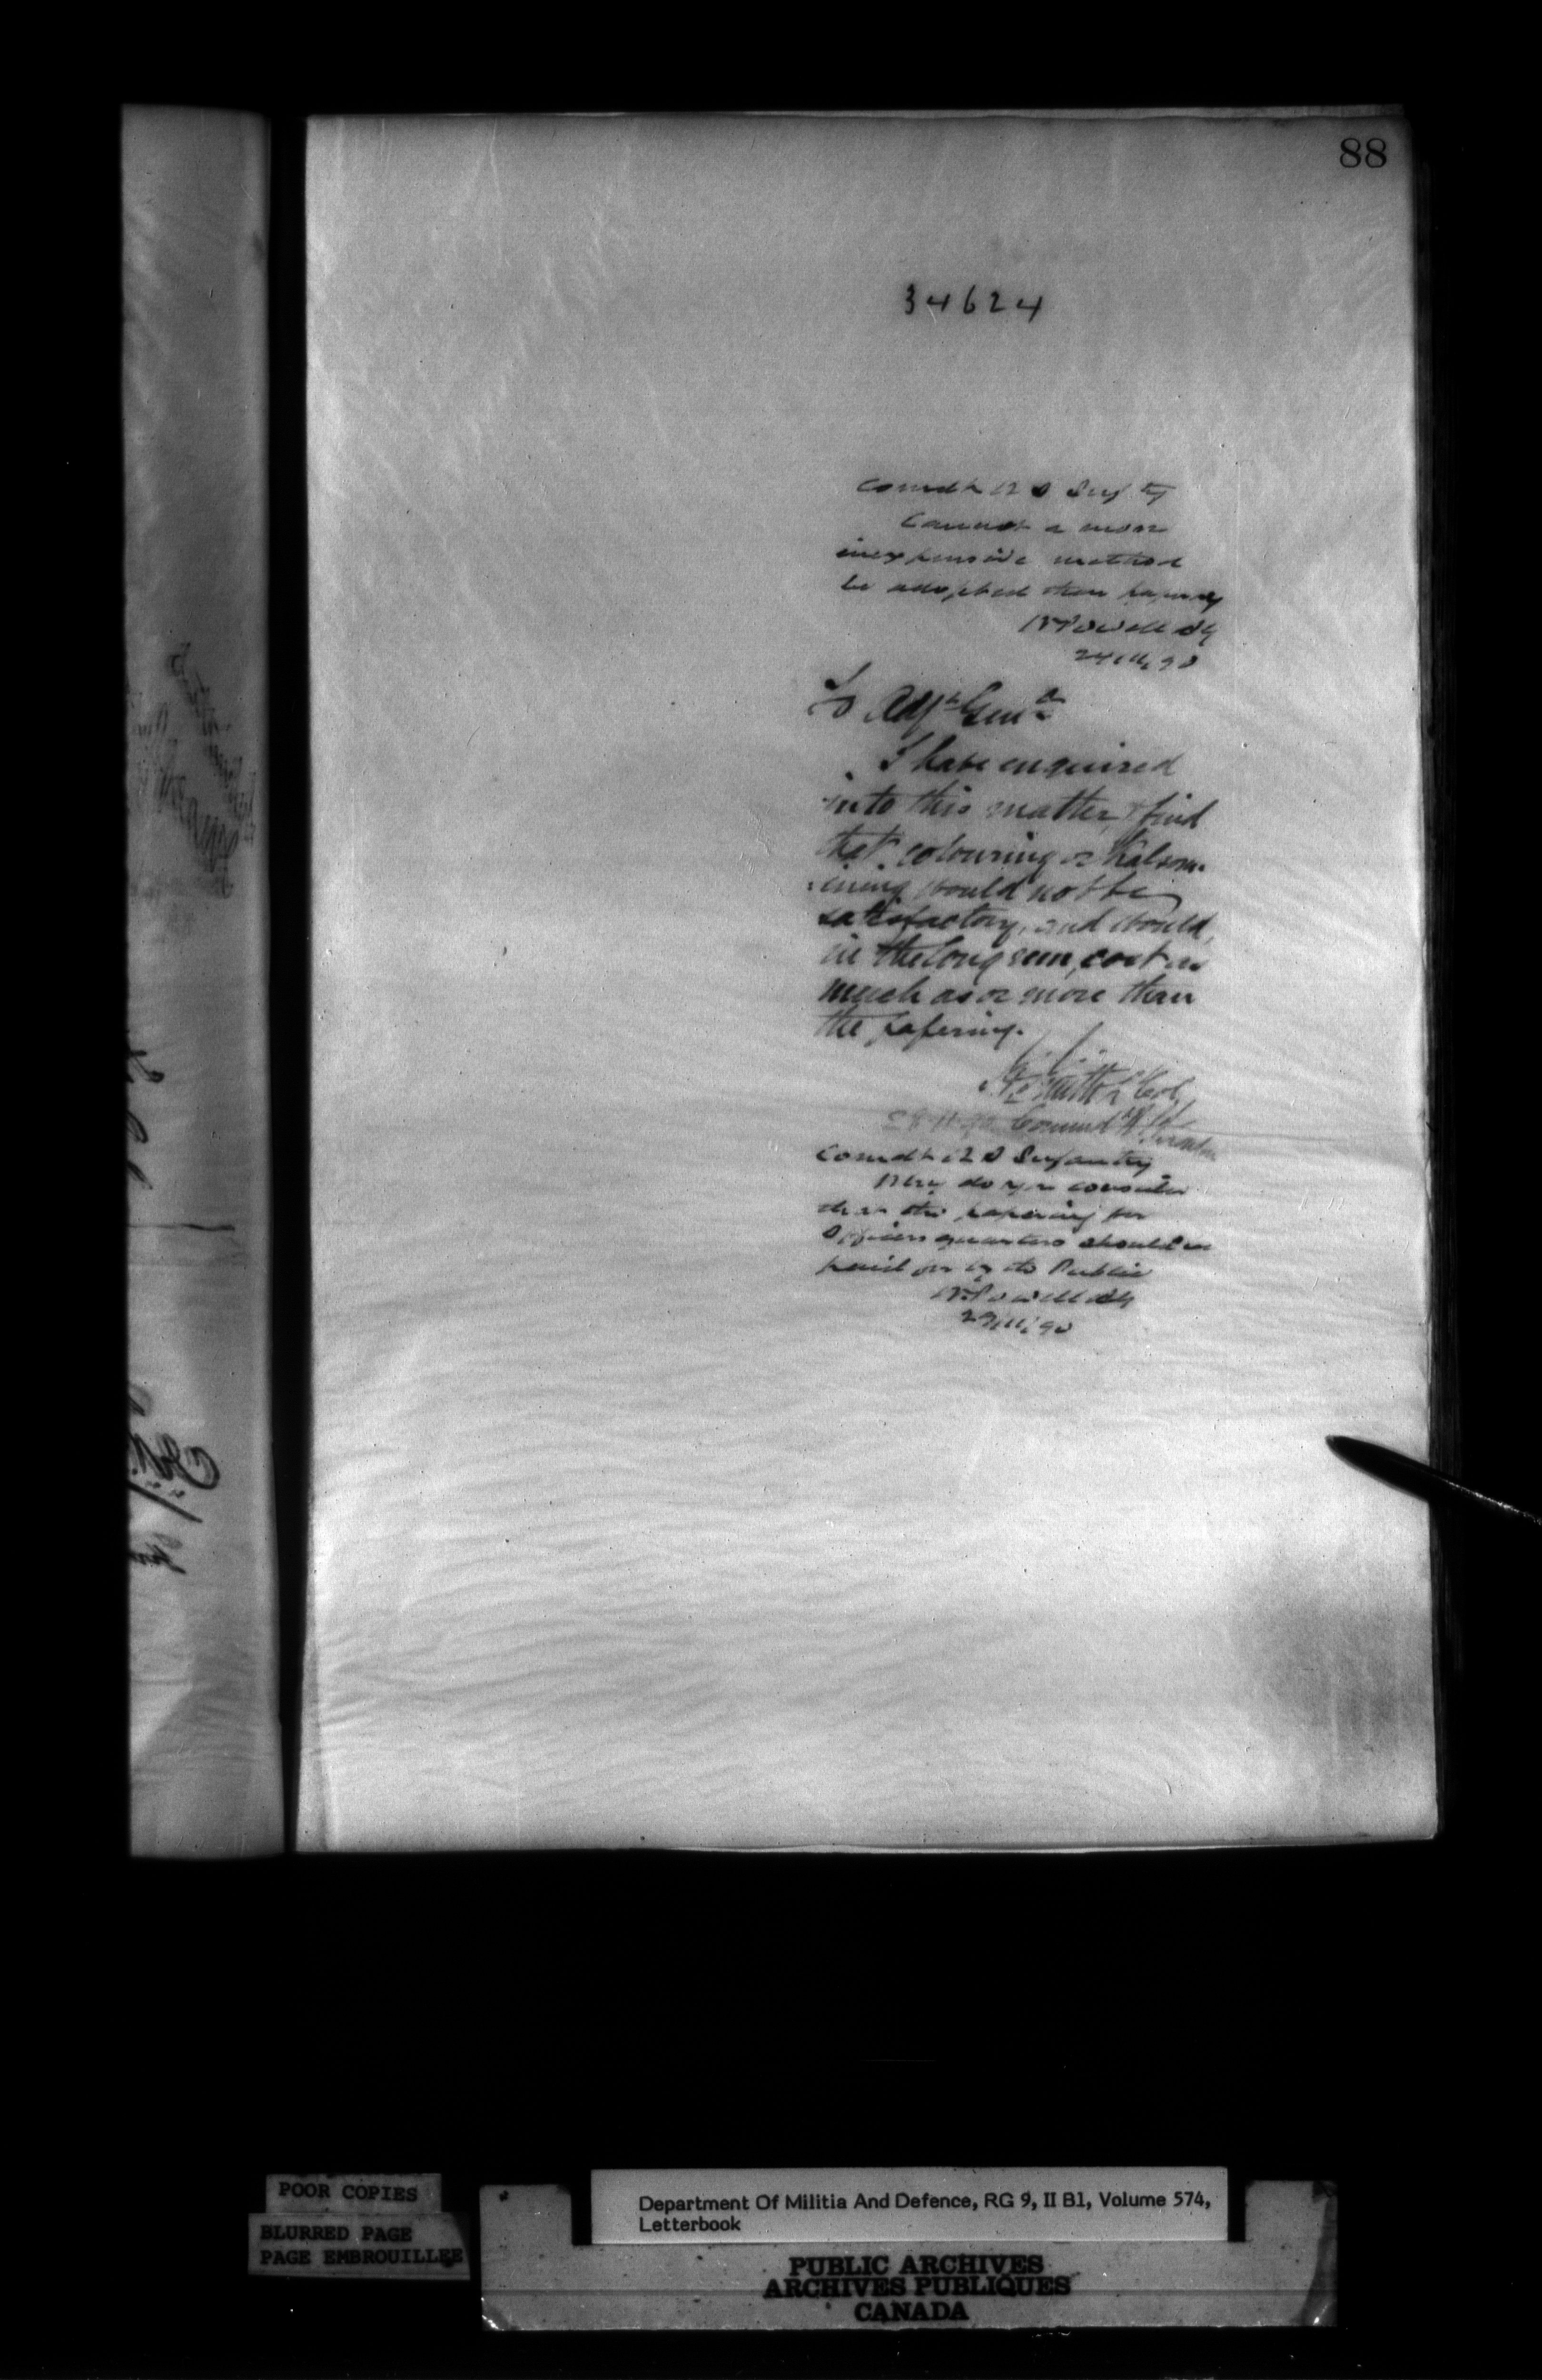 88
34624
Comdt R S Infty
Cannot a more
inexpensive method
be adopted than papering
W Powell AG
24/11/90
To Adjt Genl
I have enquired
into this matter, & find
that colouring or Kalsom-
ining would not be
satisfactory, and would,
in the long run, cost as
much as or more than
the papering.
Smith Lt Col,
28.11.90 Commdt
Comdt R S Infantry
Why do you consider
that the papering for
Officers quarters should be
paid for by the Public
W Powell AG
29/11/90
POOR COPIES
BLURRED PAGE
PAGE EMBROUILLEE
Department Of Militia And Defence, RG 9, II B1, Volume 574,
Letterbook
PUBLIC ARCHIVES
ARCHIVES PUBLIQUES
CANADA